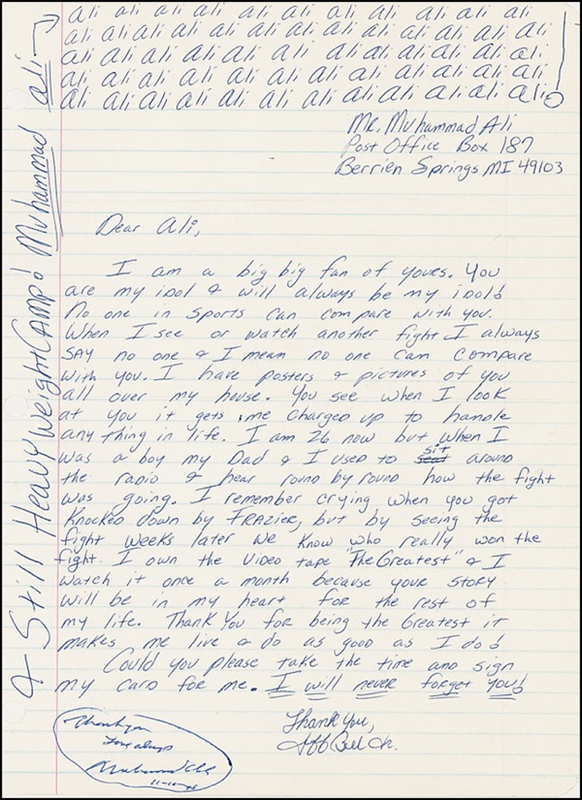 ali ali ali ali ali ali ali ali ali ali ali ali
ali ali ali ali ali ali ali ali ali ali ali ali
ali ali ali ali ali ali ali ali ali ali ali ali
ali ali ali ali ali ali ali ali ali ali ali ali
ali ali ali ali ali ali ali ali ali ali ali ali ali
Mr. Muhammad Ali
Post Office Box 187
Berrien Springs MI 49103
Dear Ali,
I am a big big fan of yours. You
are my idol & will always be my idol!
No one in sports can compare with you.
When I see or watch another fight I always
SAY no one & I mean no one can compare
with you. I have posters & pictures of you
all over my house. You see when I look
at you it gets me charged up to handle
any thing in life. I am 26 now but when I
was a boy my Dad & I used to seat sit around
the radio & hear round by round how the fight
was going. I remember crying when you got
knocked down by FRAZIER, but by seeing the
fight weeks later we know who really won the
fight. I own the video tape "The Greatest" & I
watch it once a month because your story
will be in my heart for the rest of
my life. Thank You for being the Greatest it
makes me live & do as good as I do!
Could you please take the time and sign
my card for me. I will never forget you!
Thank You,
& Still HeavyWeight CAMP! Muhammad ali
Thank you
Love always
Muhammad Ali